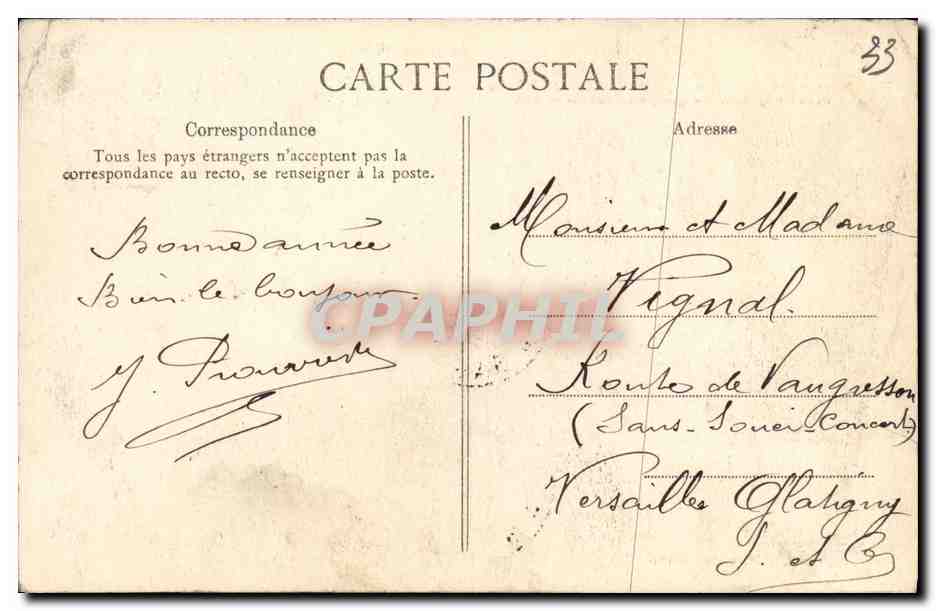 33
CARTE POSTALE
Correspondance
Tous les pays étrangers n'acceptent pas la
correspondance au recto, se renseigner à la poste.
Bonne année
Bien le bonjour.
J.
Adresse
Monsieur et Madame
Vignal.
Route de Vaugresson
(Sans-Souci-Concert)
Versailles Glatigny
S. et O.
CPAPHIL